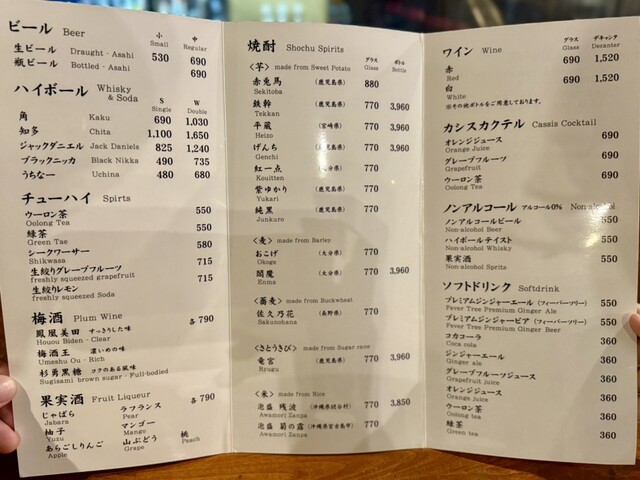 ビール Beer 小 Small 中 Regular
生ビール Draught - Asahi 530 690
瓶ビール Bottled - Asahi 690
ハイボール Whisky & Soda S Single W Double
角 Kaku 690 1,030
知多 Chita 1,100 1,650
ジャックダニエル Jack Daniels 825 1,240
ブラックニッカ Black Nikka 490 735
うちなー Uchina 480 680
チューハイ Spirts
ウーロン茶 550
Oolong Tea
緑茶 550
Green Tae
シークワーサー 580
Shikwasa
生絞りグレープフルーツ 715
freshly squeezed grapefruit
生絞りレモン 715
freshly squeezed Soda
梅酒 Plum Wine 各790
鳳凰美田 すっきりした味
Houou Biden - Clear
梅酒王 濃いめの味
Umeshu Ou - Rich
杉勇黒糖 コクのある風味
Sugisami brown sugar - Full-bodied
果実酒 Fruit Liqueur 各790
じゃばら ラフランス
Jabara Pear
柚子 マンゴー
Yuzu Mango
あらごしりんご 山ぶどう 桃
Apple Grape Peach
焼酎 Shochu Spirits グラス Glass ボトル Bottle
<芋> made from Sweet Potato
赤兎馬 (鹿児島県) 880
Sekitoba
鉄幹 (鹿児島県) 770 3,960
Tekkan
平蔵 (宮崎県) 770 3,960
Heizo
げんち (鹿児島県) 770 3,960
Genchi
紅一点 (大分県) 770
Kouitten
紫ゆかり (鹿児島県) 770
Yukari
純黒 (鹿児島県) 770
Junkuro
<麦> made from Barley
おこげ (大分県) 770
Okoge
閻魔 (大分県) 770 3,960
Enma
<蕎麦> made from Buckwheat
佐久乃花 (長野県) 770
Sakunohana
<さとうきび> made from Sugar cane
竜宮 (鹿児島県) 770 3,960
Ryugu
<米> made from Rice
泡盛 残波 (沖縄県読谷村) 770 3,850
Awamori Zanpa
泡盛 菊の露 (沖縄県宮古島市) 770
Awamori Zanpa
ワイン Wine グラス Glass デキャンタ Decanter
赤 690 1,520
Red
白 690 1,520
White
※その他ボトルをご用意しております。
カシスカクテル Cassis Cocktail
オレンジジュース 690
Orange Juice
グレープフルーツ 690
Grapefruit
ウーロン茶 690
Oolong Tea
ノンアルコール アルコール0% Non-alcohol
ノンアルコールビール 550
Non-alcohol Beer
ハイボールテイスト 550
Non-alcohol Whisky
果実酒 550
Non-alcohol Sprits
ソフトドリンク Softdrink
プレミアムジンジャーエール (フィーバーツリー) 550
Fever Tree Premium Ginger Ale
プレミアムジンジャービア (フィーバーツリー) 550
Fever Tree Premium Ginger Beer
コカコーラ 360
Coca cola
ジンジャーエール 360
Ginger ale
グレープフルーツジュース 360
Grapefruit juice
オレンジジュース 360
Orange juice
ウーロン茶 360
Oolong tea
緑茶 360
Green tea